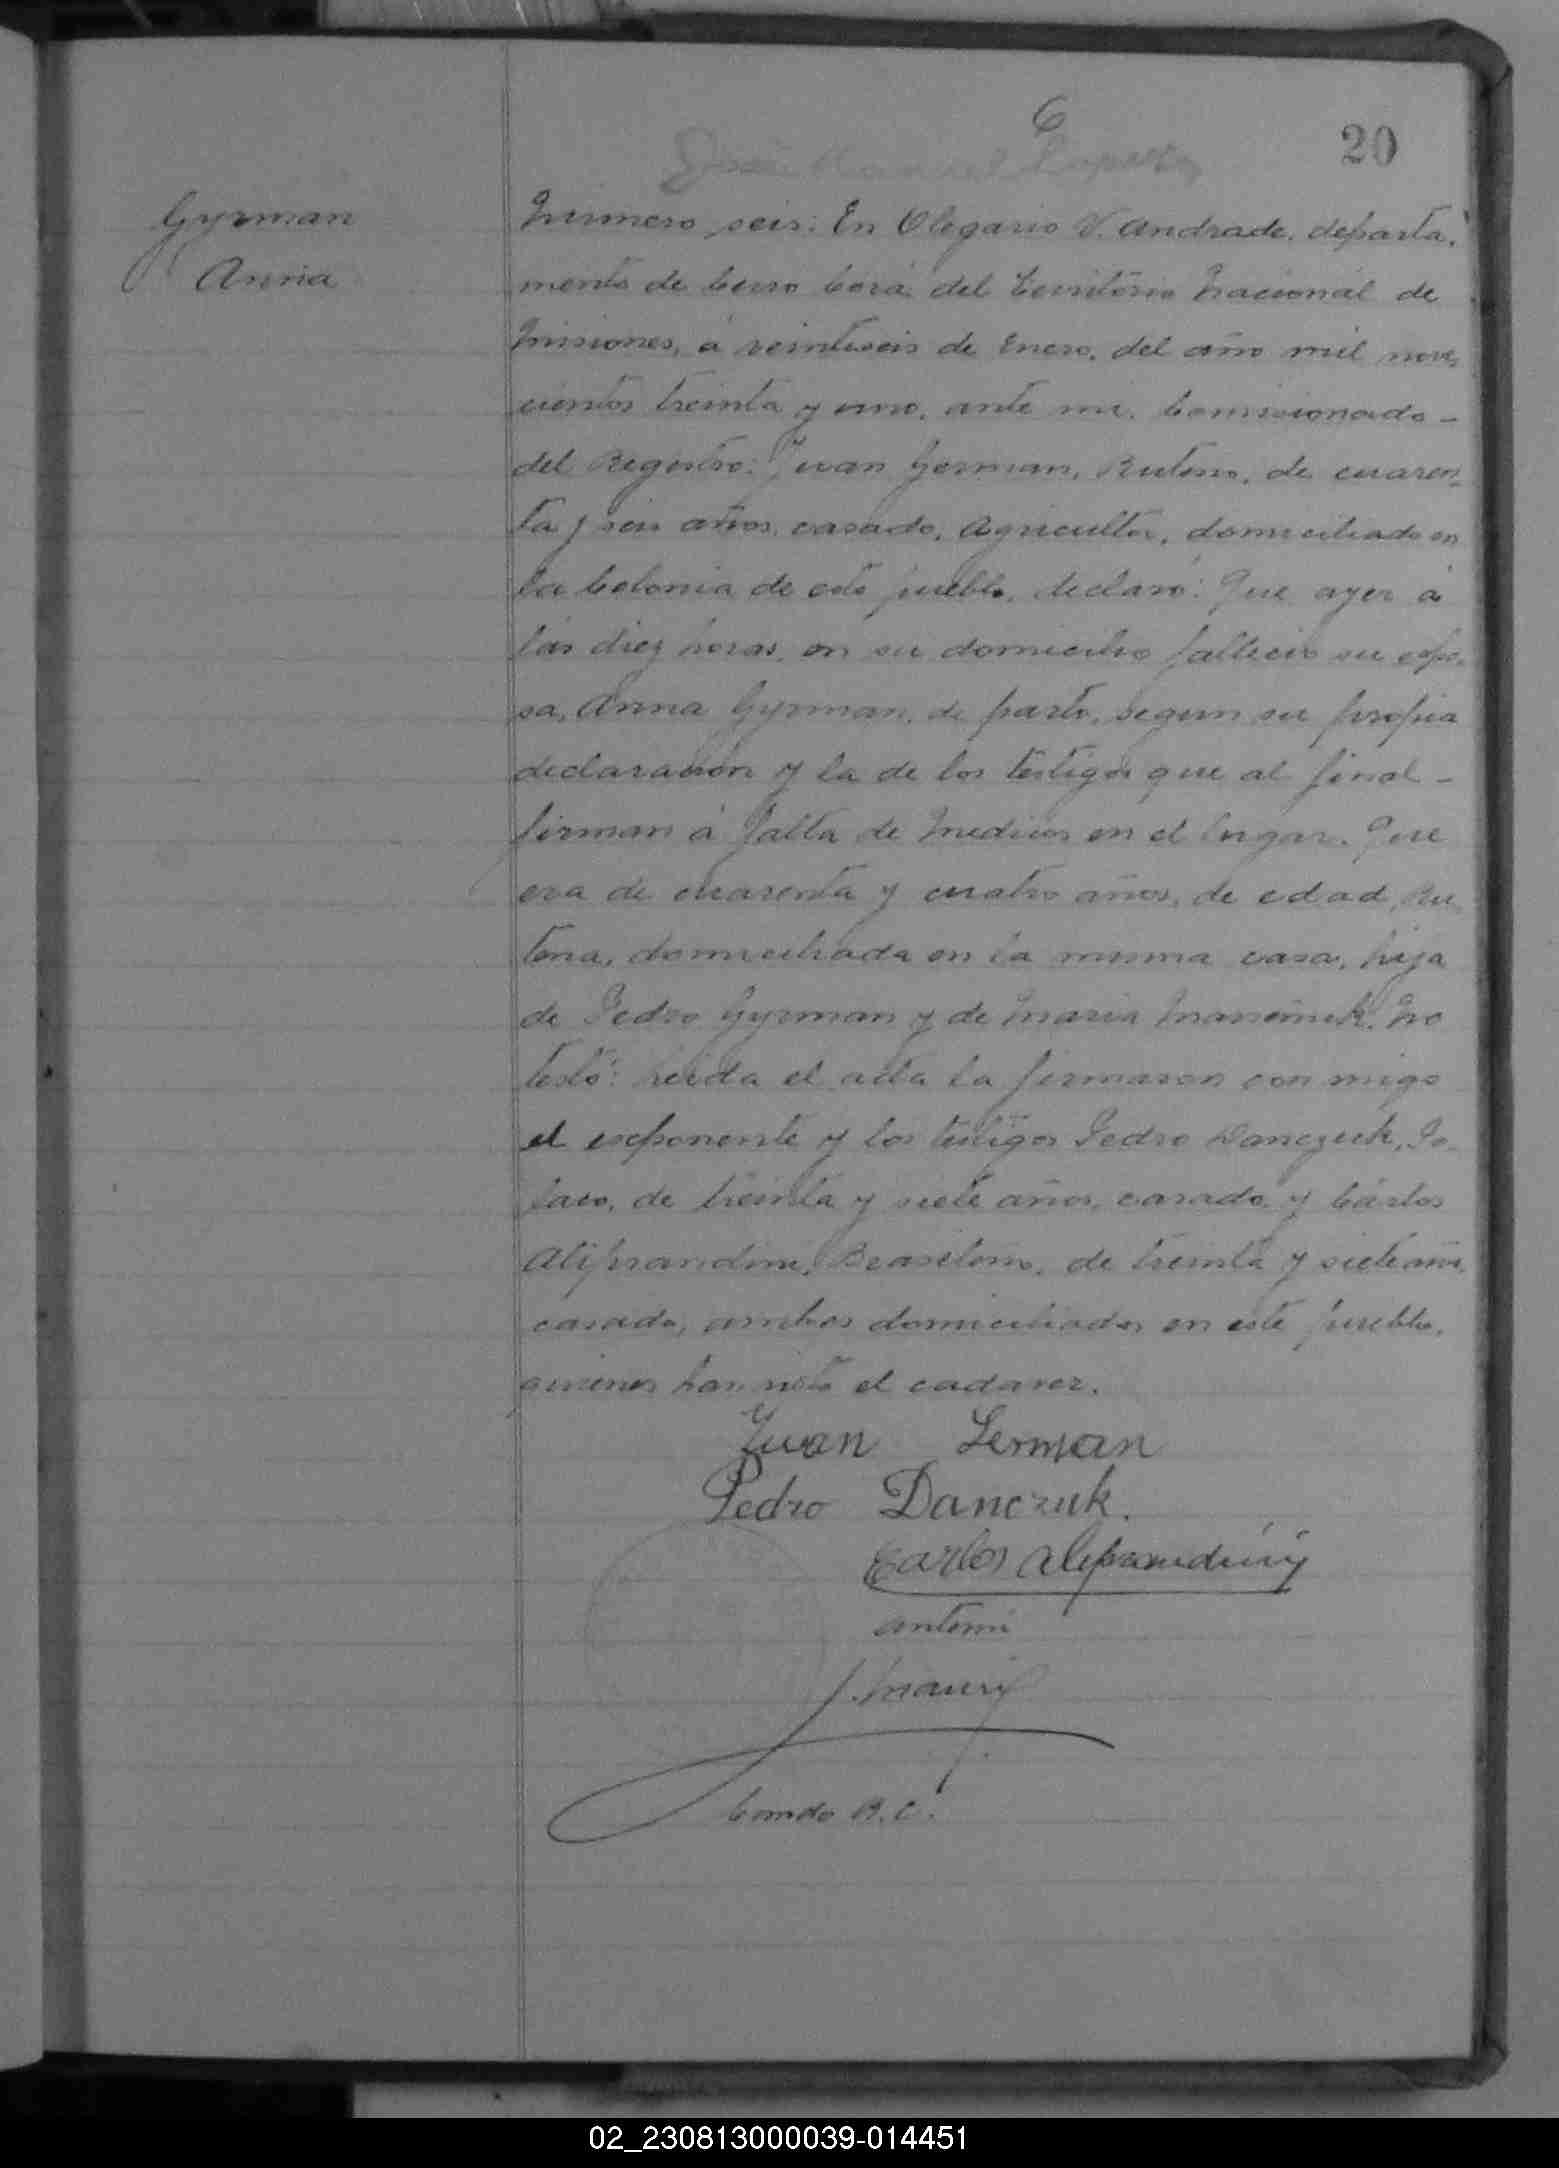 6
20
Gyrman
Anna
Número seis: En Olegario V. Andrade, departa-
mento de Cerro Corá del Territorio Nacional de
Misiones, á veintiseis de Enero, del año mil nove-
cientos treinta y uno, ante mi, Comisionado -
del Registro: Juan German, Ruteno, de cuaren-
ta y seis años, casado, Agricultor, domiciliado en
la Colonia de este pueblo, declaró: Que ayer á
las diez horas, en su domicilio falleció su espo-
sa, Anna Gyrman, de parto, segun su propia
declaración y la de los testigos que al final -
firman á falta de Medicos en el lugar. Que
era de cuarenta y cuatro años, de edad, Ru-
tena, domiciliada en la misma casa, hija
de Pedro Gyrman y de Maria No
testó: Leida el acta la firmaron con migo
el exponente y los testigos Pedro Danczuk, Po-
laco, de treinta y siete años, casado, y Cárlos
Aliprandini, Brasileño, de treinta y siete años,
casado, ambos domiciliados en este pueblo,
quienes han visto el cadaver.
Juan German
Pedro Danczuk.
Carlos Aliprandini
antemi
J. Mauri
Comdo R.C.
02_230813000039-014451